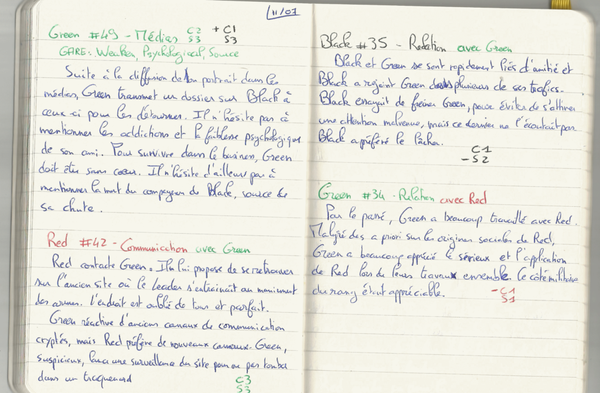 11/01
Green #49 - Médias C2 + C1
S3 S3
GARE: Weaken, Psychological, Source
Suite à la diffusion de son portrait dans les
médias, Green transmet un dossier sur Black à
ceux-ci pour les détourner. Il n'hésite pas à
mentionner les addictions et la faiblesse psychologique
de son ami. Pour survivre dans le business, Green
doit être sans cœur. Il n'hésite d'ailleurs pas à
mentionner la mort du compagnon de Black, source de
sa chute.
Red #42 - Communication avec Green
Red contacte Green. Il lui propose de se retrouver
sur l'ancien site où le Leader s'entrainait au maniement
des armes. L'endroit est oublié de tous et parfait.
Green réactive d'anciens canaux de communication
cryptés, mais Red préfère de nouveaux canaux. Green,
suspicieux, lance une surveillance du site pour ne pas tomber
dans un traquenard
C3
S3
Black #35 - Relation avec Green
Black et Green se sont rapidement liés d'amitié et
Black a rejoint Green dans plusieurs de ses trafics.
Black essayait de freiner Green, pour éviter de s'attirer
une attention malvenue, mais ce dernier ne l'écoutait pas.
Black a préféré le lâcher.
C1
- S2
Green #34 - Relation avec Red
Par le passé, Green a beaucoup travaillé avec Red.
Malgré des a priori sur les origines sociales de Red,
Green a beaucoup apprécié le sérieux et l'application
de Red lors de leurs travaux ensemble. Le côté militaire
du rang était appréciable.
- C1
S1